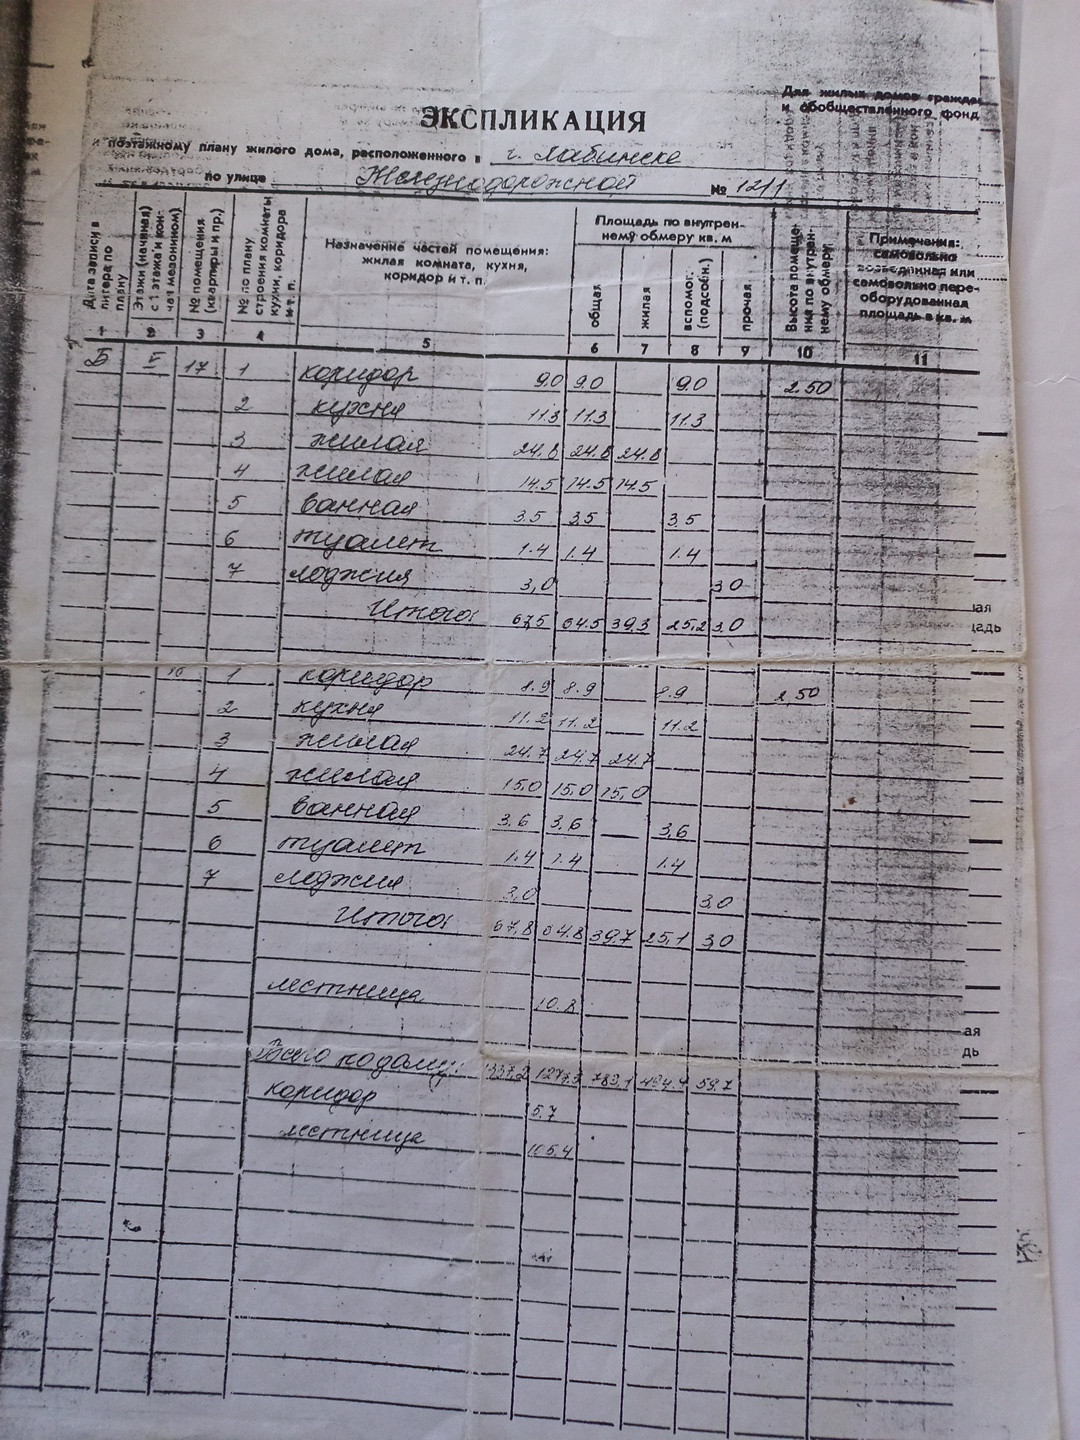 Для жилых домов граждан
и обобществленного фонд
ЭКСПЛИКАЦИЯ
к поэтажному плану жилого дома, расположенного в г. Лабинске
по улице Железнодорожной № 12/1
Дата записи и литера по плану
Этажи (начиная) с 1 этажа и кончая мезонином)
№ помещения (квартиры и пр.)
№ по плану строения комнаты кухни, коридора и т. п.
Назначение частей помещения: жилая комната, кухня, коридор и т. п.
Площадь по внутреннему обмеру кв. м
общая
жилая
вспомог. (подсобн.)
прочая
Высота помещения по внутреннему обмеру
Примечания: самовольно возведенная или самовольно переоборудованная площадь в кв. м
1 2 3 4 5 6 7 8 9 10 11
Б V 17 1 коридор 9.0 9.0 9.0 2.50
2 кухня 11.3 11.3 11.3
3 жилая 24.8 24.8 24.8
4 жилая 14.5 14.5 14.5
5 ванная 3.5 3.5 3.5
6 туалет 1.4 1.4 1.4
7 лоджия 3,0 3.0
Итого: 67,5 64.5 39.3 25.2 3.0
1 коридор 8.9 8.9 8.9 2,50
2 кухня 11.2 11.2 11.2
3 жилая 24.7 24.7 24.7
4 жилая 15.0 15.0 15.0
5 ванная 3.6 3.6 3.6
6 туалет 1.4 1.4 1.4
7 лоджия 3,0 3.0
Итого: 67,8 64.8 39.7 25,1 3,0
лестница 10.8
Всего по дому: 59.7
коридор 5.7
лестница 105.4